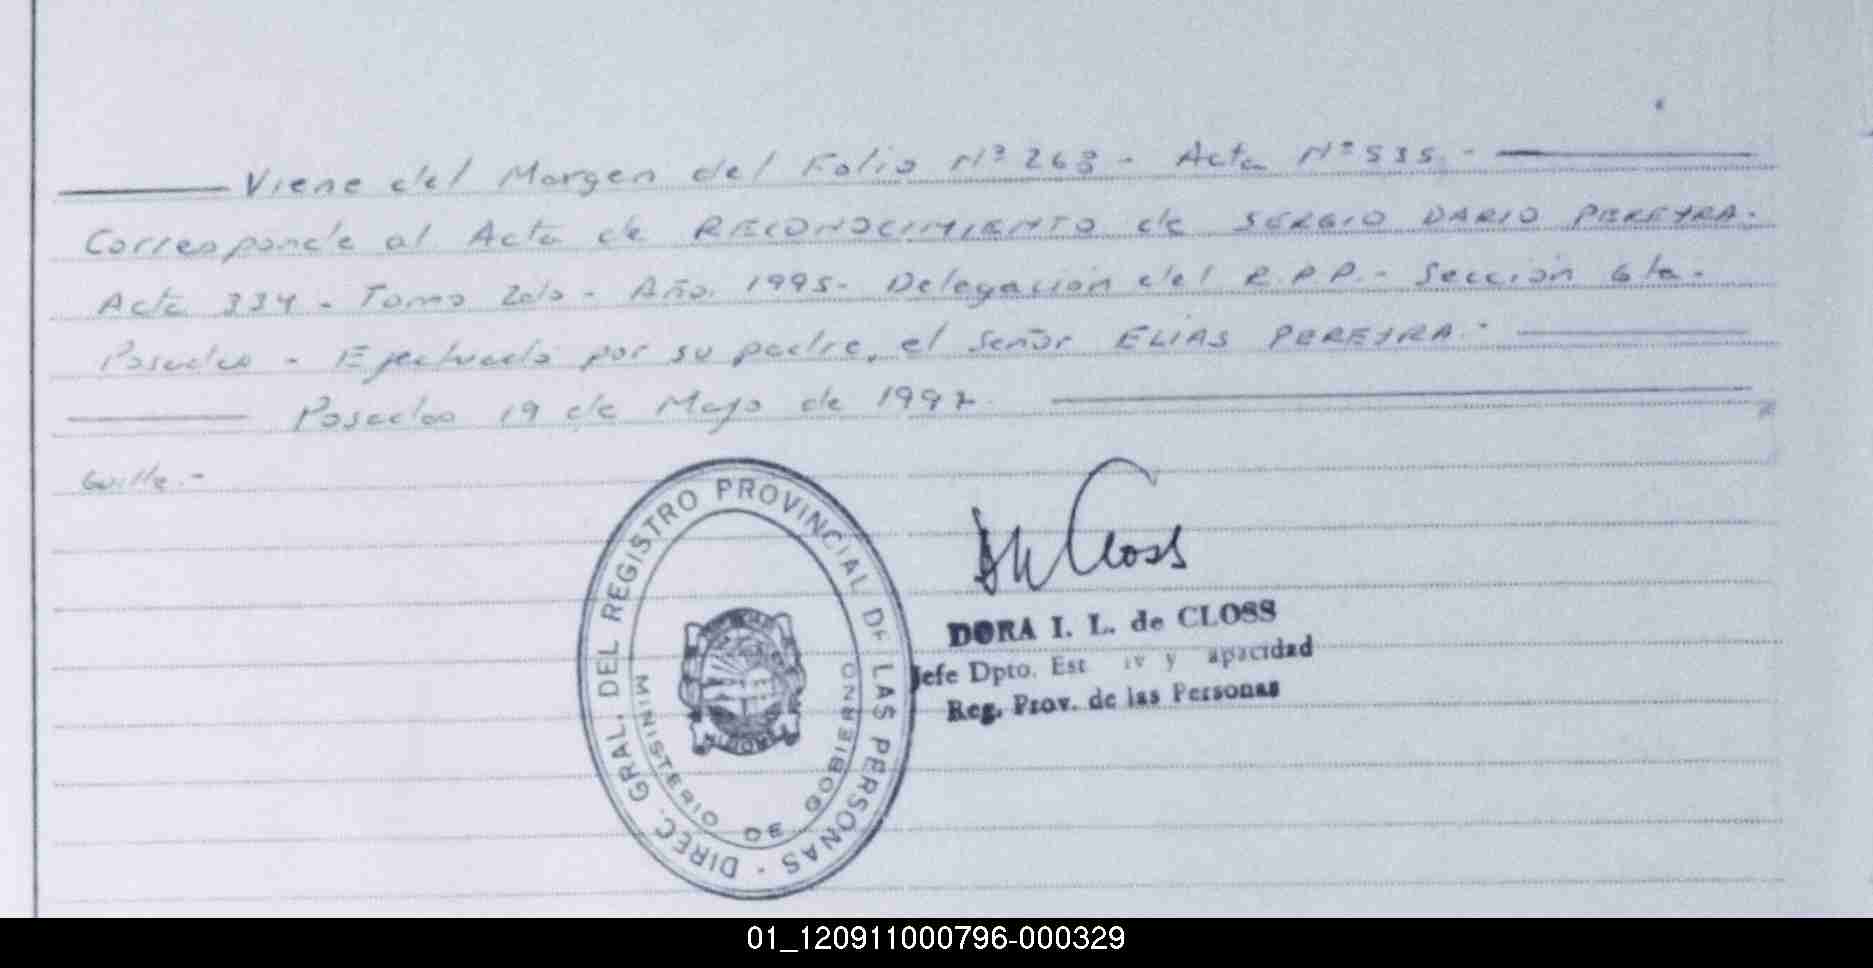 Viene del Margen del Folio Nº 263 - Acta Nº 535.-
Corresponde al Acta de RECONOCIMIENTO de SERGIO DARIO PEREYRA.
Acta 334 - Tomo 2do - Año 1995- Delegación del R.P.P.- Sección 6ta.
Posadas - Efectuado por su padre, el señor ELIAS PEREYRA.-
Posadas 19 de Mayo de 1997
Guille.-
DIREC. GRAL. DEL REGISTRO PROVINCIAL DE LAS PERSONAS -
MINISTERIO DE GOBIERNO
Closs
DORA I. L. de CLOSS
Jefe Dpto. Est iv y apacidad
Reg. Prov. de las Personas
01_120911000796-000329